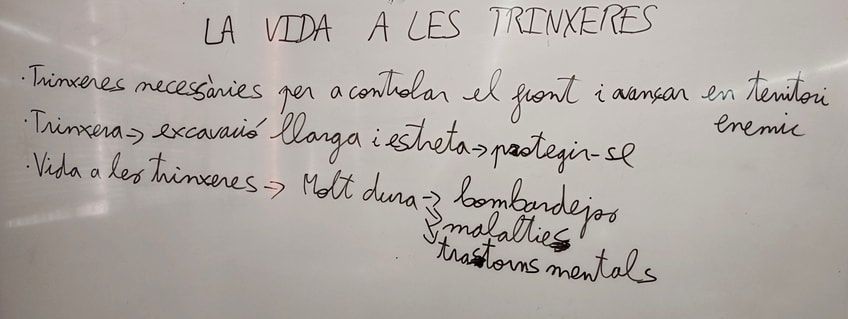 LA VIDA A LES TRINXERES
· Trinxeres necessàries per a controlar el front i avançar en territori
enemic
· Trinxera → excavació llarga i estreta → protegir-se
· Vida a les trinxeres → Molt dura → bombardejos
→ malalties
→ trastorns mentals